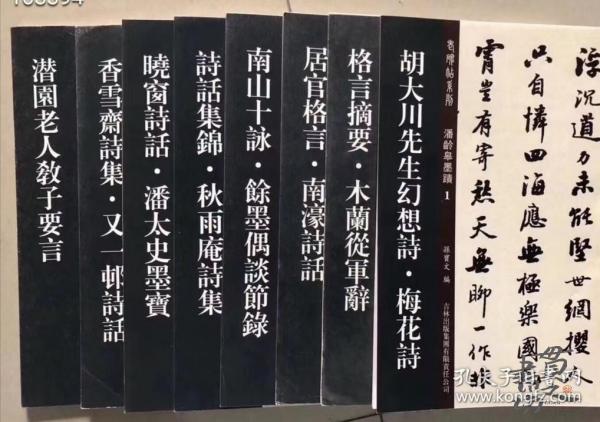 浮沉道力未能堅世網攖人
只自憐四海應無極樂國
霄豈有寄愁天無聊一作
老碑帖系列
潘齡皋墨蹟 1
孫寶文 編
吉林出版集團有限責任公司
胡大川先生幻想詩·梅花詩
格言摘要·木蘭從軍辭
居官格言·南濠詩話
南山十詠·餘墨偶談節錄
詩話集錦·秋雨庵詩集
曉窗詩話·潘太史墨寶
香雪齋詩集·又一邨詩話
潜園老人教子要言
孔夫子旧书网